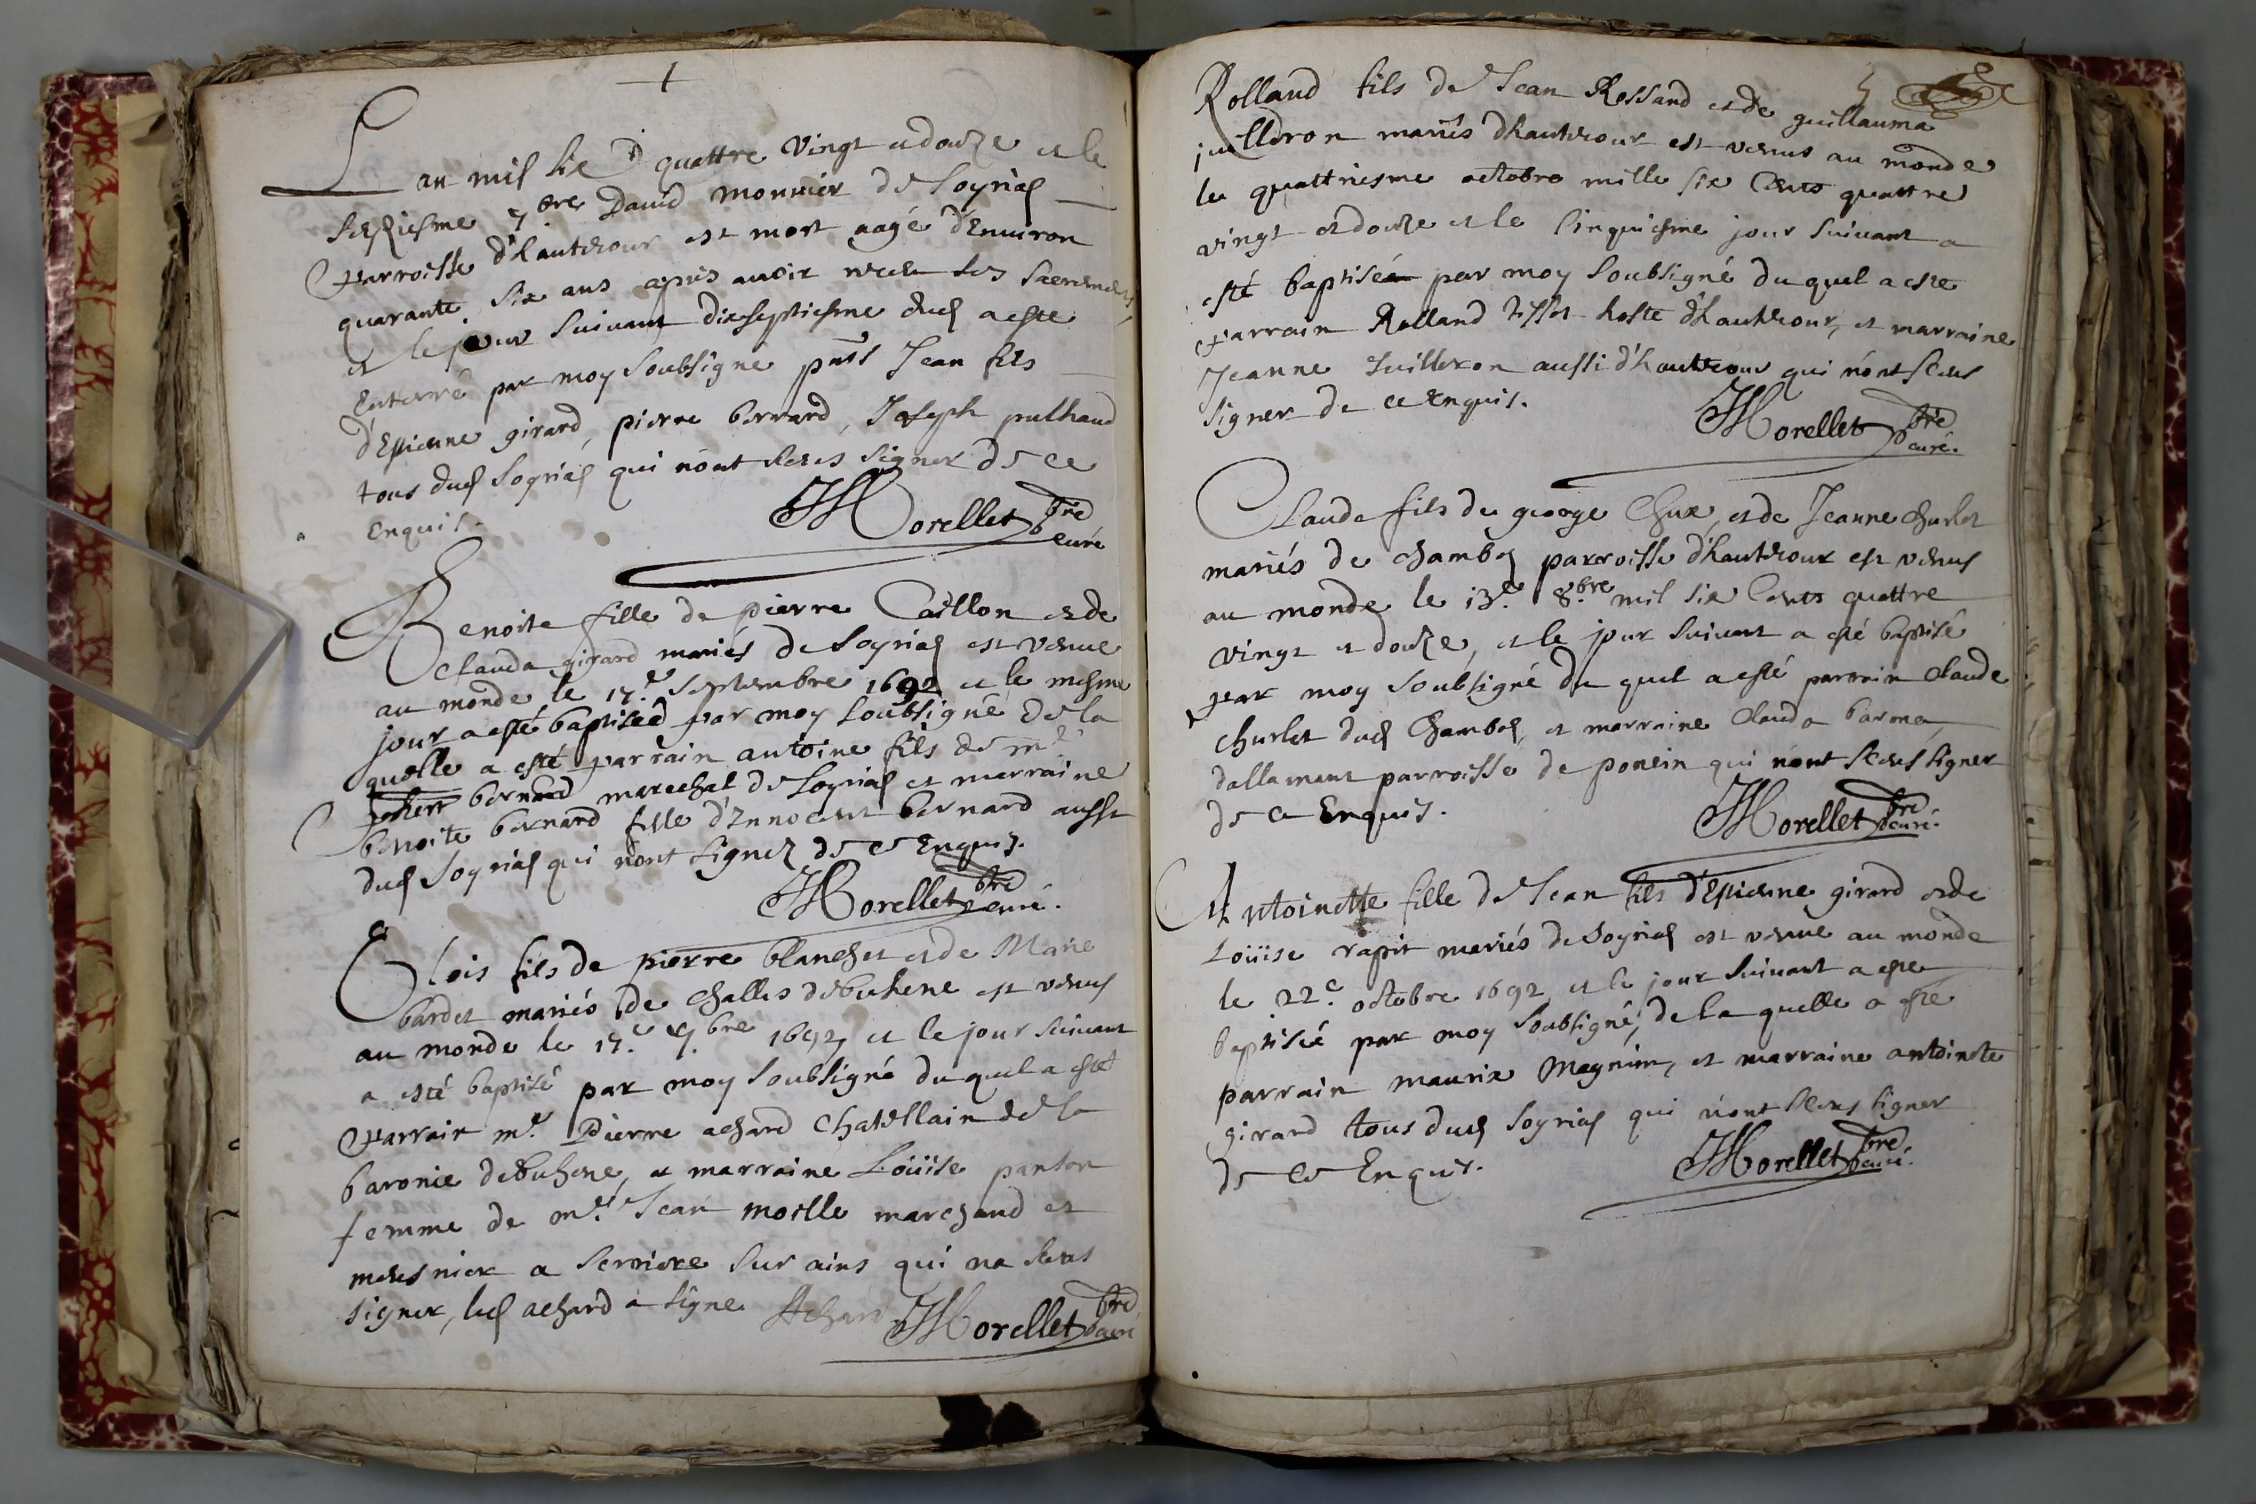 L'an mil six C quattre vingt et douze et le
seiziesme 7bre David monnier de Soyriaz
parroisse d'hautecour est mort aagé d'Environ
quarante six ans apres avoir receu les sacremens
et le jour suivant dixseptiesme dud a esté
Enterré par moy soubsigne pnts Jean fils
d'Estienne girard, pierre bernard, Joseph pulhand
tous dud Soyriaz qui n'ont sceus signer de ce
Enquis.
Morellet pbre curé
Benoite fille de pierre Caillon et de
Clauda girard mariés de Soyriaz est venue
au monde le 17.e Septembre 1692 et le mesme
jour a esté baptisée par moy soubsigné de la
quelle a esté parrain antoine fils de m.e
bernard marechal de Soyriaz et marraine
benoite bernard fille d'Innocent bernard aussi
dud Soyriaz qui n'ont signez de ce Enquis.
Morellet pbre curé.
Clois fils de pierre blanchet et de Marie
bardet mariés de Challes debuhene est venus
au monde le 17.e 7.bre 1692 et le jour suivant
a esté baptisé par moy soubsigné du quel a esté
parrain m.e Pierre achard Chatellain de la
baronie debuhene, et marraine Loüise panton
femme de m.e Jean moille marchand et
meusnier a Serriere sur ains qui na sceus
signer, led achard a signe Achard Morellet pbre curé
Rolland fils de Jean Rossand et de guillauma
juilleron mariés d'hautecour est venus au monde
le quattriesme octobre mille six Cents quattre
vingt et douze et le Cinquiesme jour suivant a
esté baptisé par moy soubsigné du quel a esté
parrain Rolland tissot hoste d'hautecour, et marraine
Jeanne Juilleron aussi d'hautecour qui n'ont sceus
signer de ce enquis.
Morellet pbre curé.
Claude fils de george Chux, et de Jeanne Churlet
mariés de Chambod parroisse d'hautecour est venus
au monde le 13.e 8.bre mil six Cents quattre
vingt et douze, et le jour suivant a esté baptisé
par moy soubsigné du quel a esté parrain Claude
Churlet dud Chambod, et marraine Clauda barme
dallement parroisse de poncin qui n'ont sceus signer
de ce Enquis.
Morellet pbre curé.
Antoinette fille de Jean fils d'Estienne girard et de
Loüise rapit mariés de Soyriaz est venue au monde
le 22.e octobre 1692 et le jour suivant a esté
baptisée par moy soubsigné, de la quelle a esté
parrain maurix Magnin, et marraine antoinete
girard tous dud Soyriaz qui n'ont sceus signer
de ce Enquis.
Morellet pbre curé.